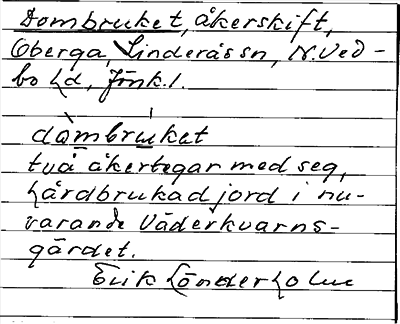 Dombruket, åkerskift,
Oberga, Linderås sn, N. Ved-
bo hd, Jönk. l.
dombruket
två åkertegar med seg,
hårdbrukad jord i nu-
varande Väderkvarns-
gärdet.
Erik Lönderholm